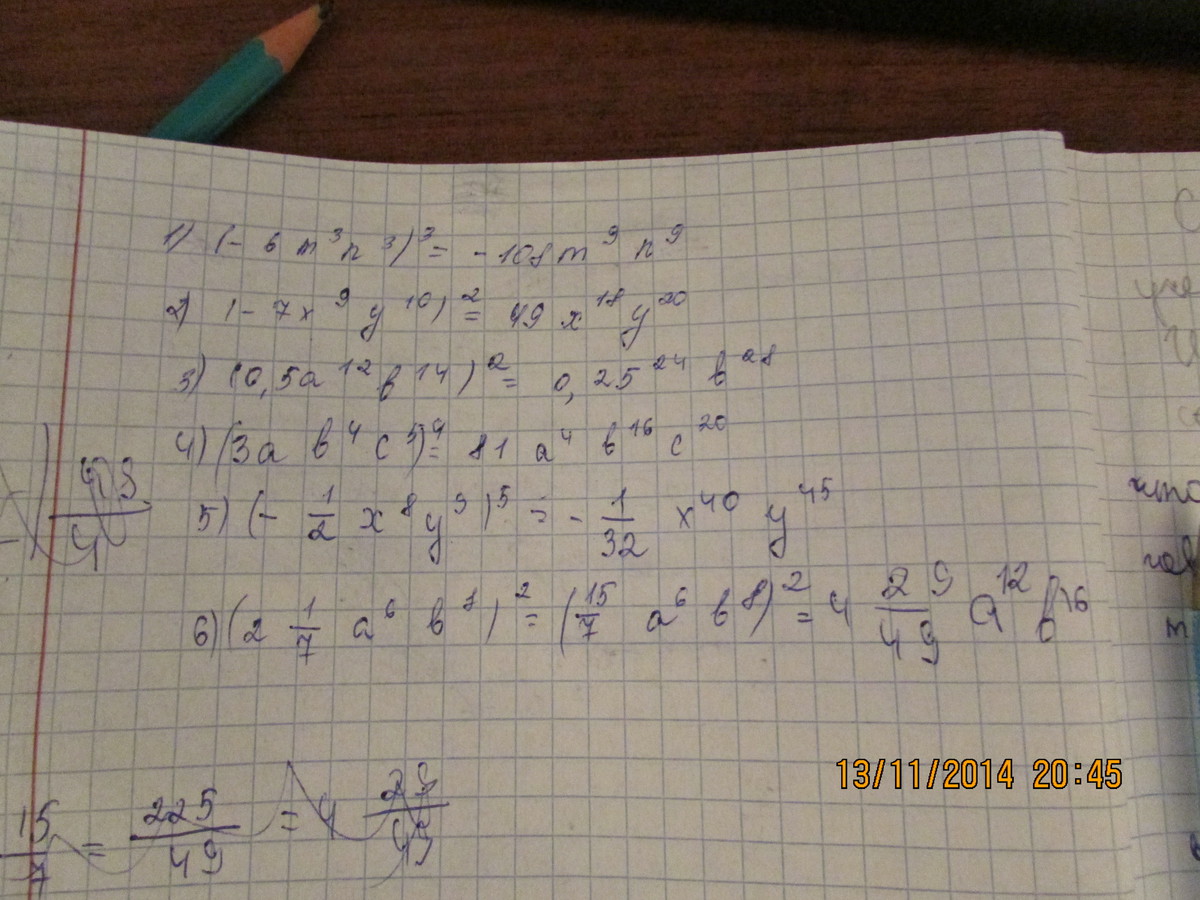 1) (- 6 m³n³)³ = -108 m⁹ n⁹
2) (- 7x⁹ y¹⁰)² = 49 x¹⁸ y²⁰
3) (0,5a¹²b¹⁴)² = 0,25²⁴ b²⁸
4) (3a b⁴ c⁵)⁴ = 81 a⁴ b¹⁶ c²⁰
5) (- 1/2 x⁸ y⁹)⁵ = - 1/32 x⁴⁰ y⁴⁵
6) (2 1/7 a⁶ b⁸)² = (15/7 a⁶ b⁸)² = 4 29/49 a¹² b¹⁶
13/11/2014 20:45
15/7 = 225/49 = 4 28/49